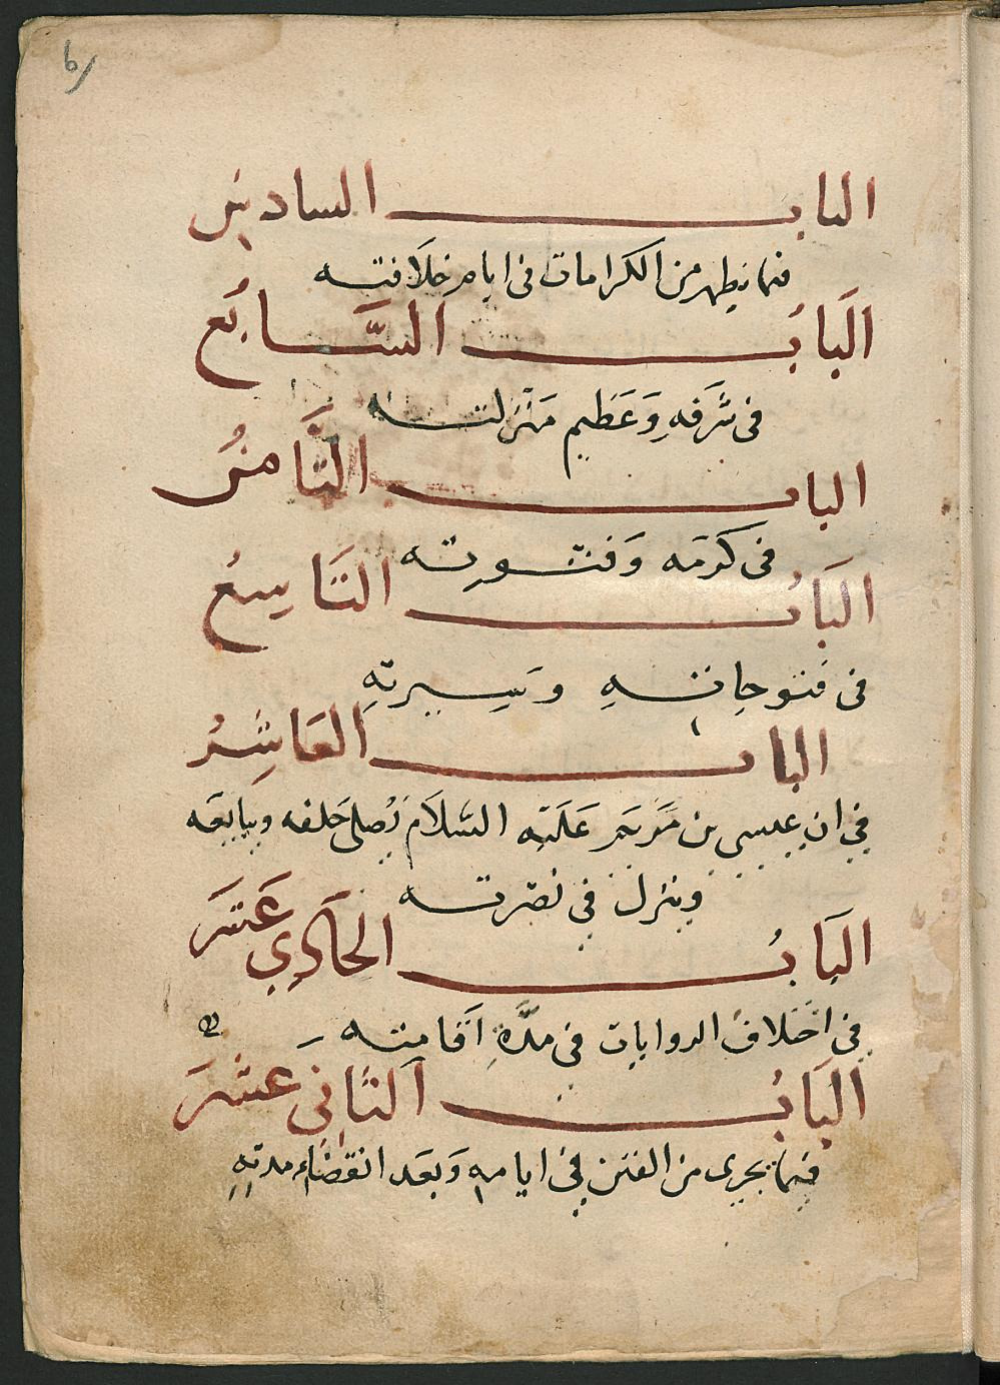 الباب السادس
فيما يظهر من الكرامات في ايام خلافته
اَلبَابُ اَلسَّابُع
في شَرَفهِ وَعَظيم مَنْزلته
الباب الثَّامنُ
في كَرَمَه وَفتوته
البَابُ التَاسِعُ
في فتوحاتهِ وَسِيرتهِ
الباب العَاشِرُ
في ان عيسى بن مَريَمَ عَلَيْه السَّلاَم يُصلى خَلفه ويبايعَه
وينزل في نصْرته
البَابُ الحَادِي عَشَر
في اختلاف الروايات في مدَّةِ اقامته
البَابُ الثاني عَشرَ
فيما يجرى من الفتن في ايامه وَبَعَد انقضَاء مدتهِ